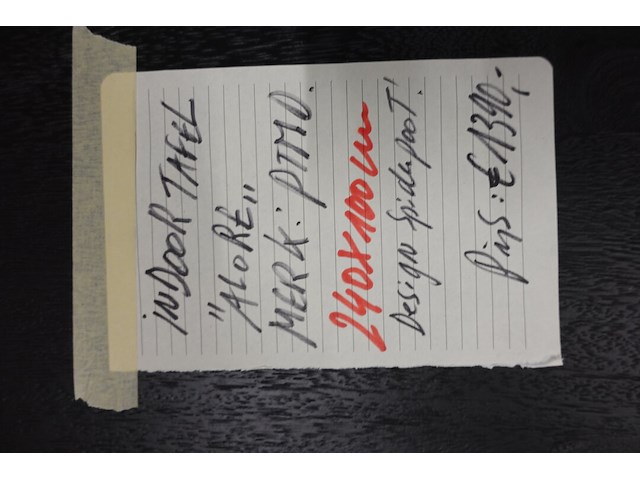 INDOOR TAFEL
"ALORE"
MERK: PTMD.
240X100cm
Design Spiderpoot!
Prijs: € 1390,-